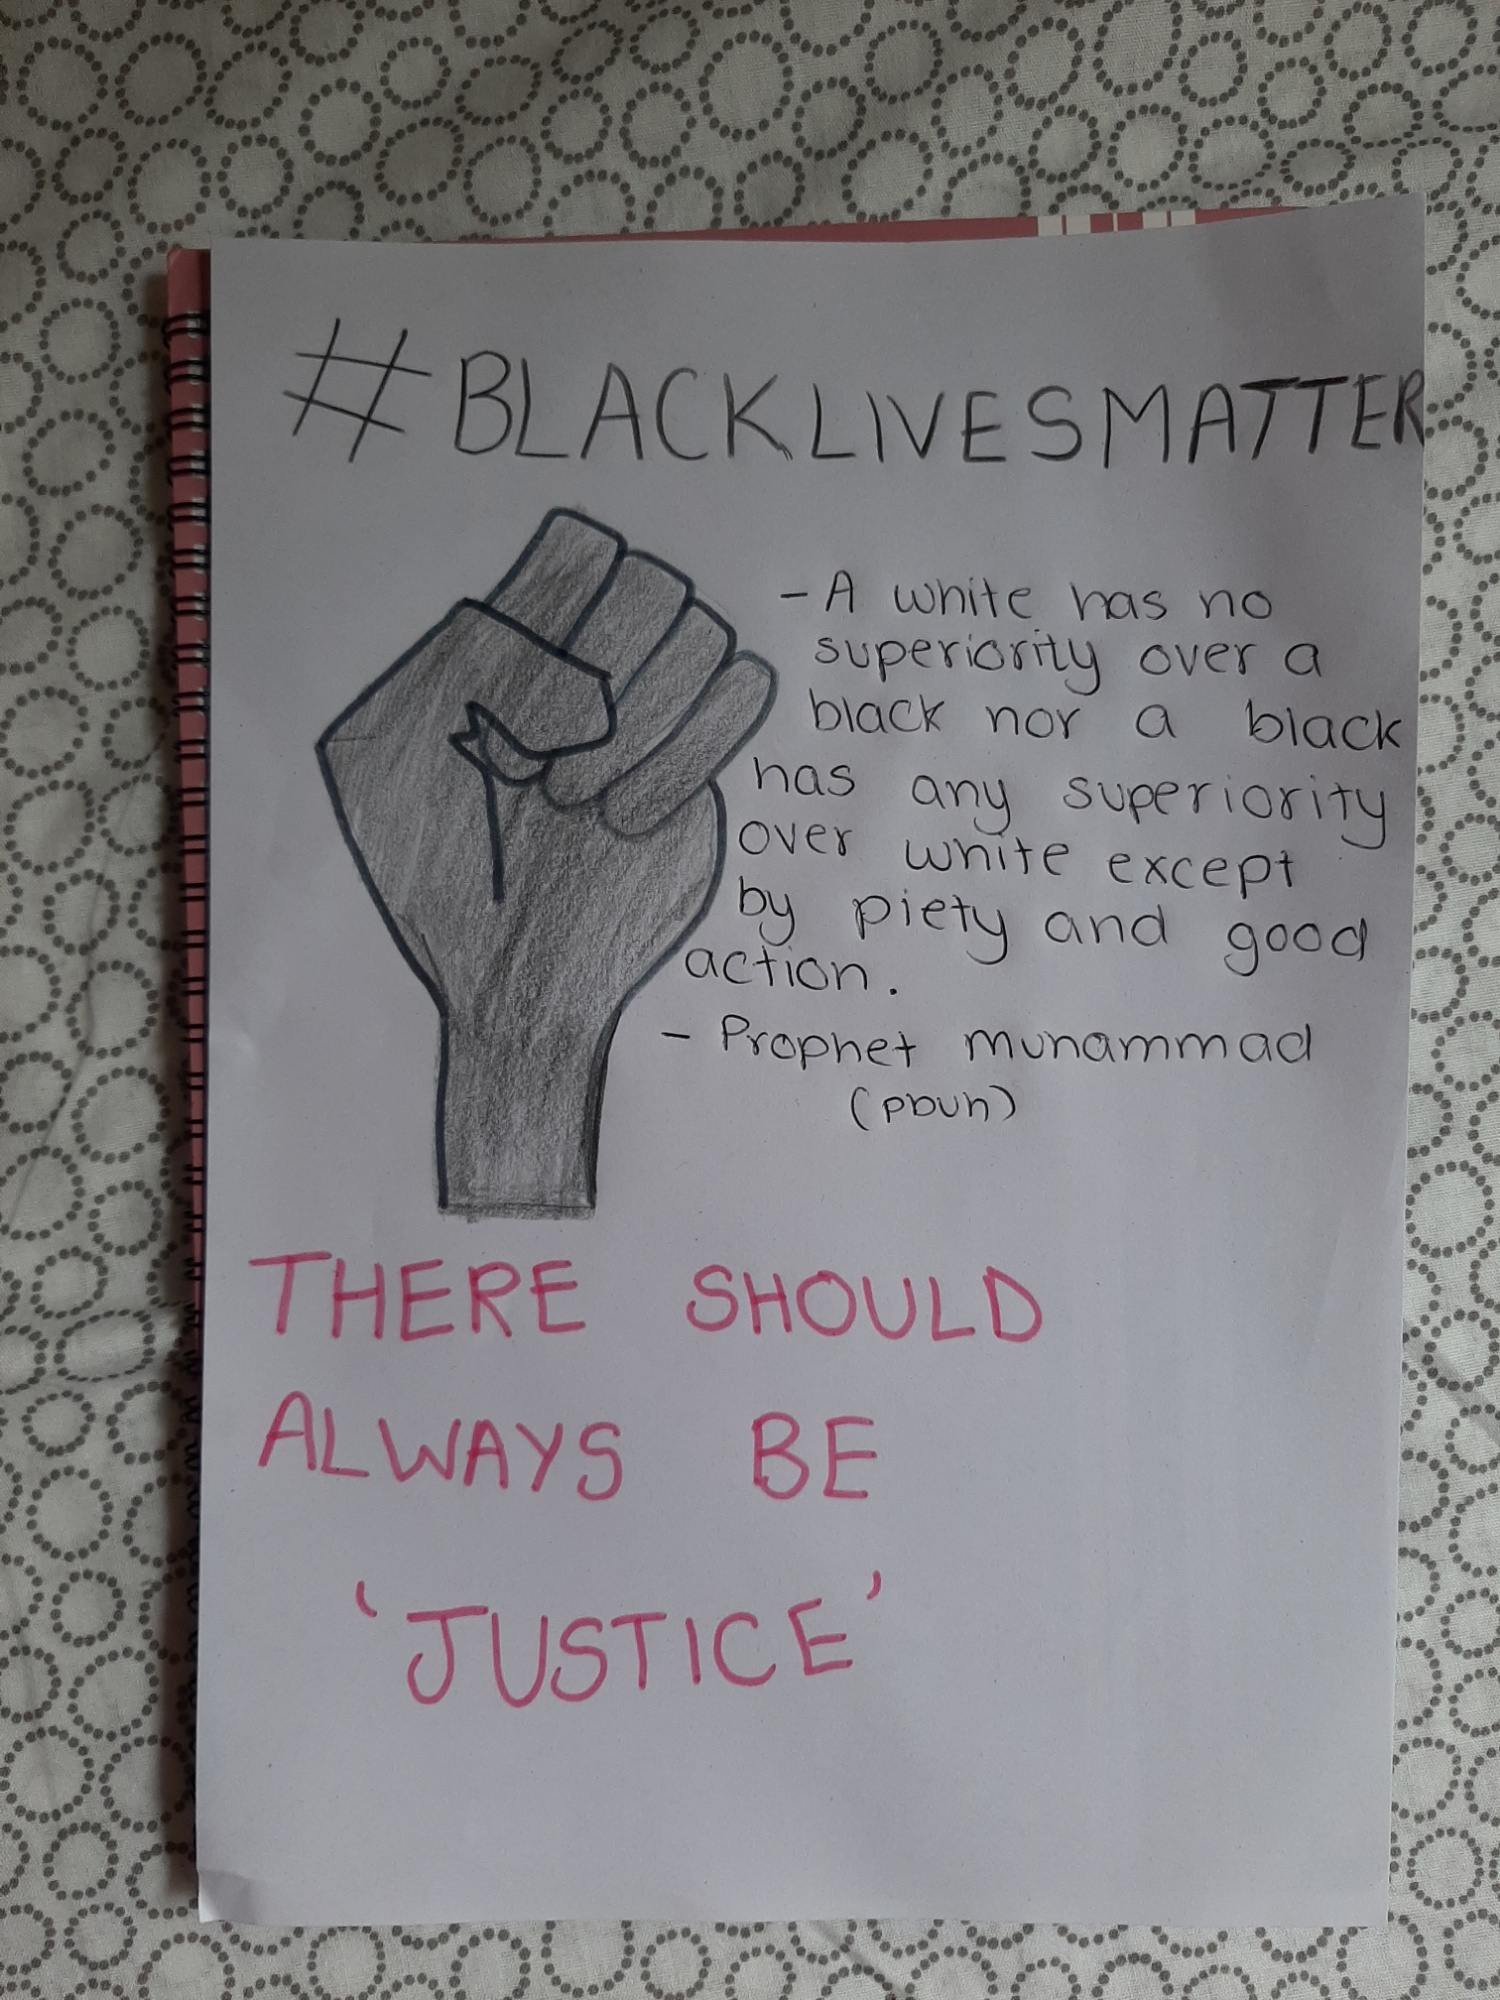 #BLACKLIVESMATTER
- A white has no
superiority over a
black nor a black
has any superiority
over white except
by piety and good
action.
- Prophet muhammad
(pbuh)
THERE SHOULD
ALWAYS BE
'JUSTICE'